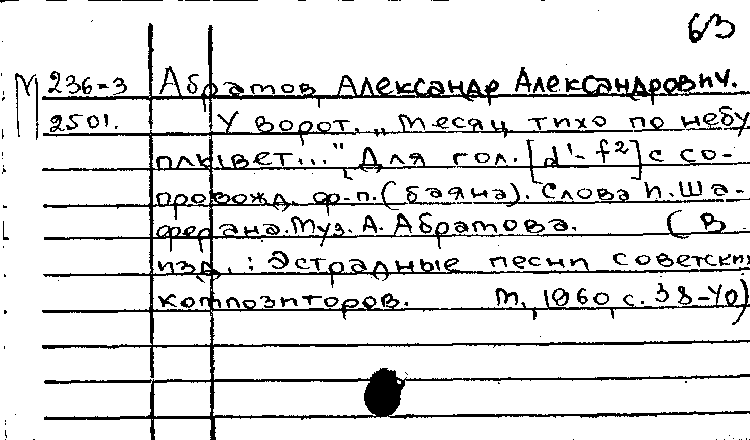 63
М 236-3 Абратов, Александр Александрович.
2501. У ворот. „Месяц тихо по небу
плывет..." Для гол. [d¹-f²] с со-
провожд. ф-п. (баяна). Слова Н. Ша-
ферана. Муз. А. Абратова. (В
изд.: Эстрадные песни советских
композиторов. М., 1960, с. 38-40)